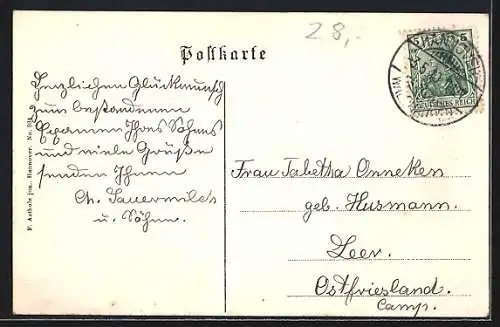 28,-
Postkarte
5 5
DEUTSCHES REICH
Herzlichen Glückwunsch
zum bestandenen
Examen Ihres Sohnes
und viele Grüße
senden Ihnen
Ch. Sauermilch
u. Söhne.
Frau Tabetha Onneken
geb. Husmann.
Leer.
Ostfriesland.
Camp.
F. Astholz jun., Hannover. No.